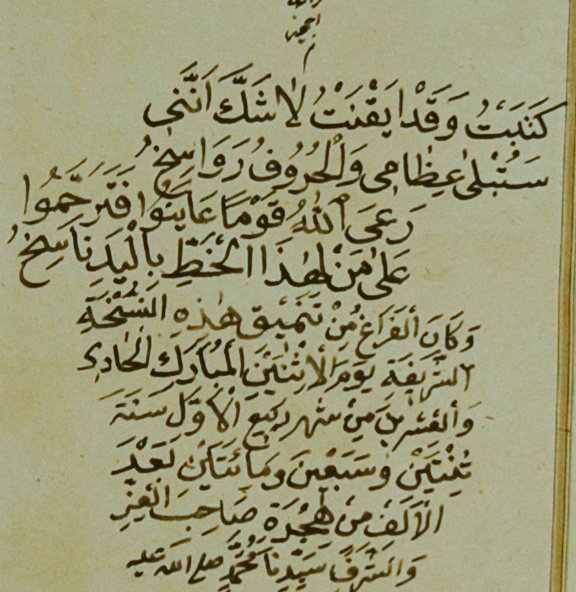 كَتَبْتُ وَقَدْ اَيْقَنْتُ لَا شَكَّ اَنَّنِى
سَتُبْلٰى عِظَامِى وَالْحُرُوْفُ رَوَاسِخُ
رَعَى اللّٰهُ قَوْمًا عَايَنُوا فَتَرَحَّمُوا
عَلٰى مَنْ لِهٰذَا الْخَطِّ بِالْيَدِ نَاسِخُ
وَكَانَ الفَرَاغُ مِنْ تَنْمِيْقِ هٰذِهِ النُّسْخَةِ
الشَّرِيْفَةِ يَوْمَ الْاِثْنَيْنِ الْمُبَارَكِ الْحَادِى
وَالْعِشْرِيْنَ مِنْ شَهْرِ رَبِيْعِ الْاَوَّلِ سَنَةَ
ثِنْتَيْنِ وَسَبْعِيْنَ وَمِائَتَيْنِ بَعْدَ
الْاَلْفِ مِنْ هِجْرَةِ صَاحِبِ الْعِزِّ
وَالشَّرَفِ سَيِّدِنَا مُحَمَّدٍ صلى الله عليه